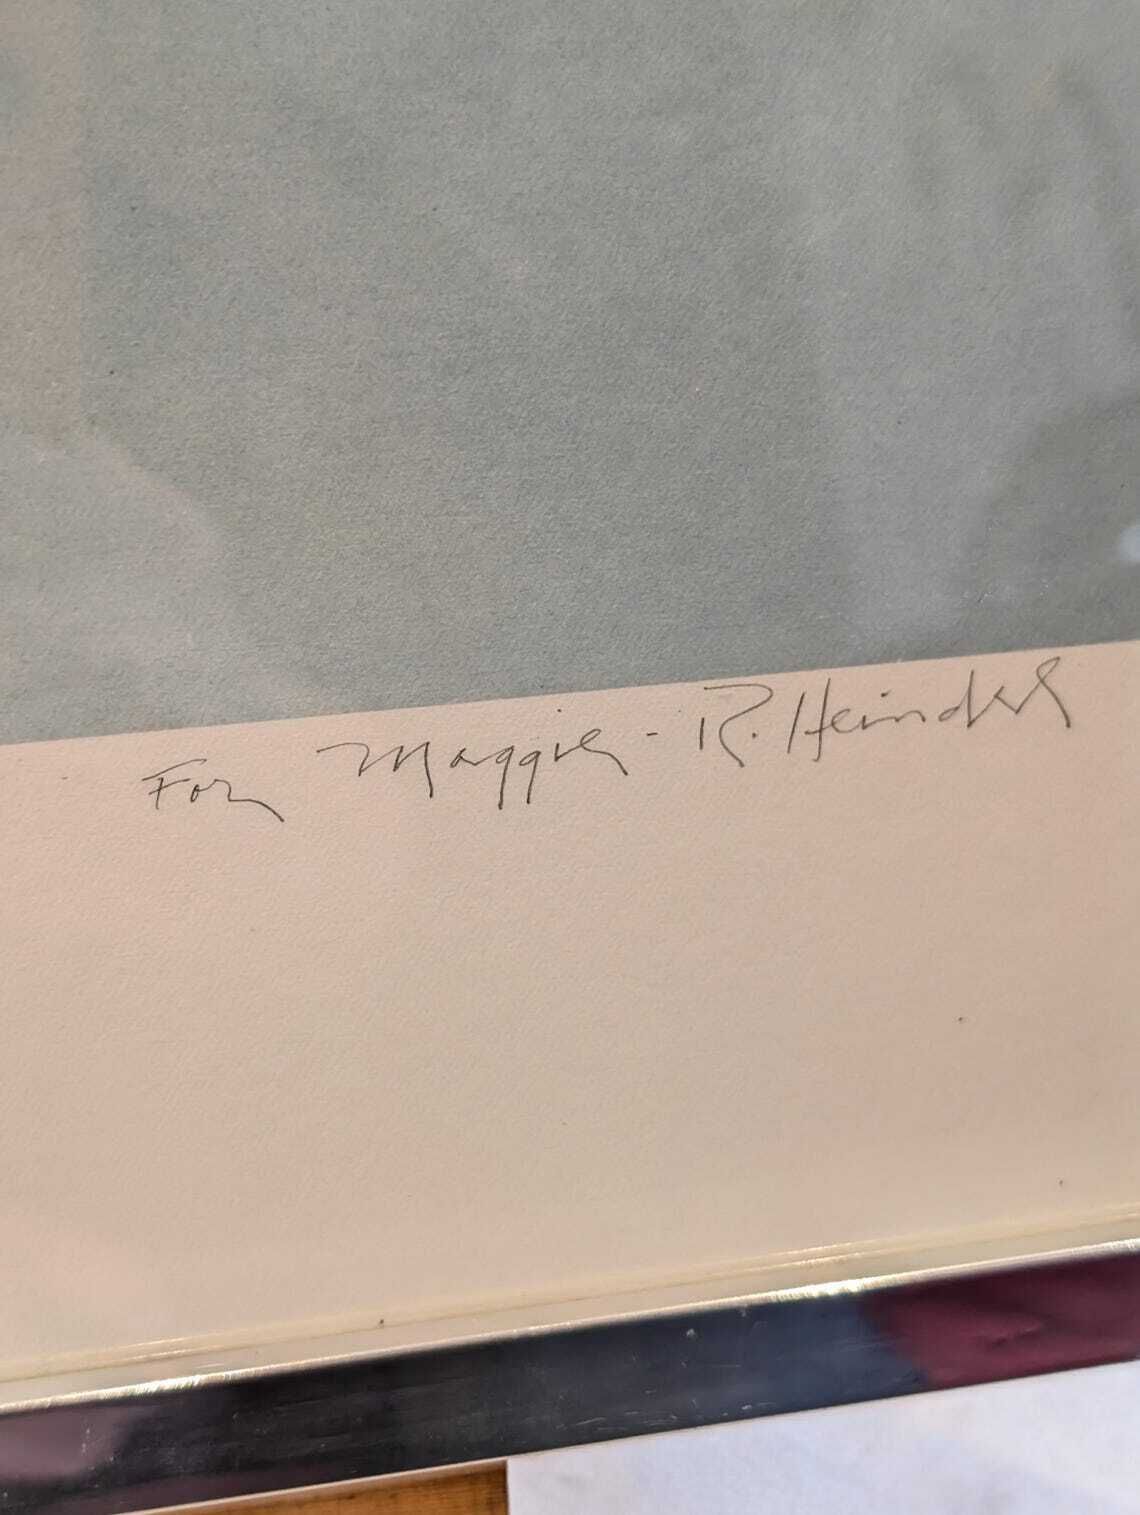 For Maggie - R. Heindel